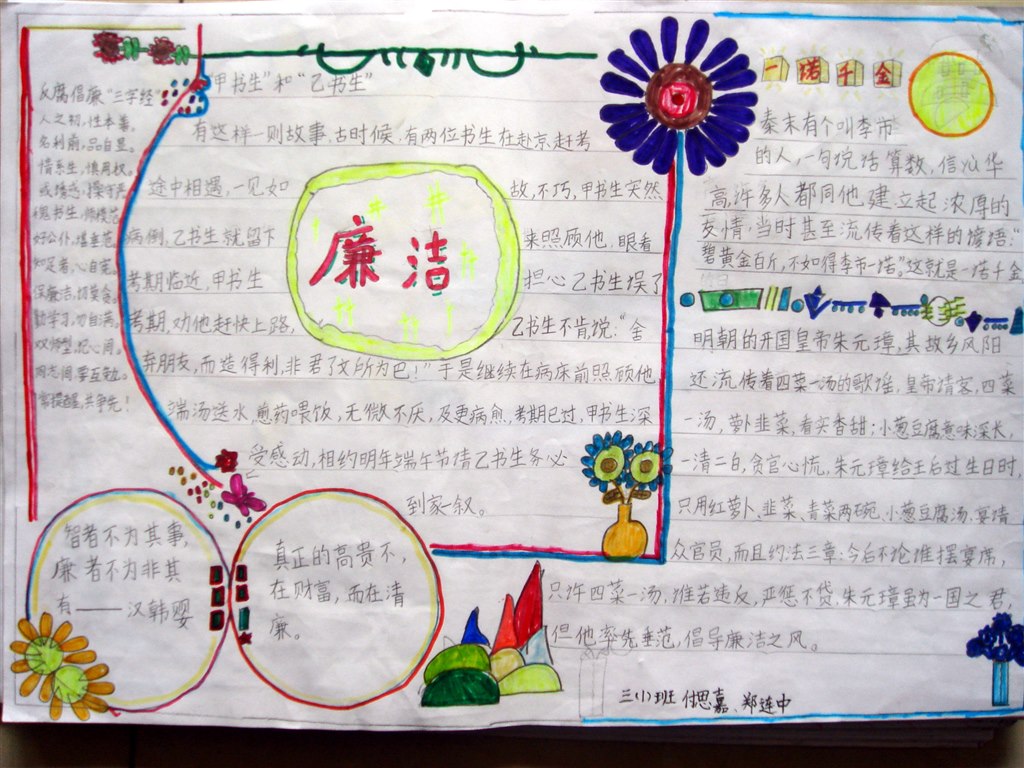 反腐倡廉"三字经"
人之初,性本善。
名利前,品自显。
惜系生,慎用权。
好公仆,堪垂范。
知足者,心自宽。
保廉洁,切莫贪。
勤学习,勿自满。
同志间,要互勉。
常提醒,共争先!
"甲书生"和"乙书生"
有这样一则故事,古时候,有两位书生在赴京赶考
途中相遇,一见如故,不巧,甲书生突然
病倒,乙书生就留下来照顾他,眼看
考期临近,甲书生担心乙书生误了
考期,劝他赶快上路,乙书生不肯说:"舍
弃朋友,而造得利,非君子所为巴!"于是继续在病床前照顾他
端汤送水,煎药喂饭,无微不厌,及更病愈,考期已过,甲书生深
受感动,相约明年端午节请乙书生务必
到家一叙。
廉洁
智者不为其事,
廉者不为非其
有——汉韩婴
真正的高贵不,
在财富,而在清
廉。
一诺千金
秦末有个叫李布
的人,一句说话算数,信心华
高,许多人都同他建立起浓厚的
友情,当时甚至流传着这样的谚语:"
碧黄金百斤,不如得李布一诺。"这就是一诺千金
明朝的开国皇帝朱元璋,其故乡风阳
还流传着四菜一汤的歌谣,皇帝请客,四菜
一汤,萝卜韭菜,着实香甜;小葱豆腐意味深长,
一清二白,贪官心慌,朱元璋给王后过生日时,
只用红萝卜、韭菜、青菜两碗,小葱豆腐汤,宴请
众官员,而且约法三章:今后不论谁摆宴席,
只许四菜一汤,谁若违反,严惩不贷,朱元璋虽为一国之君,
但他率先垂范,倡导廉洁之风。
三(1)班 付思嘉、郑连中